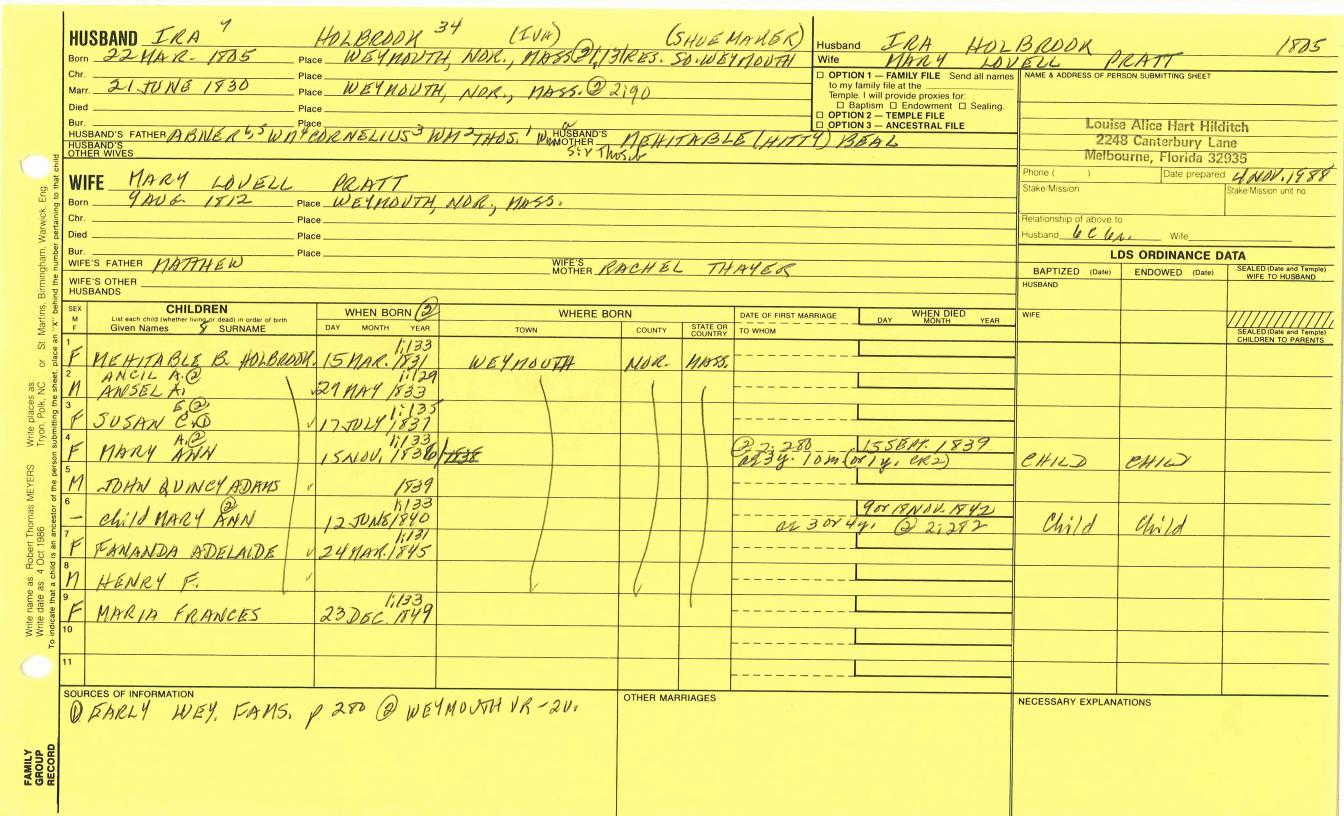 HUSBAND IRA 7 HOLBROOK 34 (IVA) (SHOEMAKER)
Born 22 MAR. 1805 Place WEYMOUTH, NOR., MASS. ② 1:131 RES. SO. WEYMOUTH
Chr. Place
Marr. 21 JUNE 1830 Place WEYMOUTH, NOR., MASS. ② 2:90
Died Place
Bur. Place
HUSBAND'S FATHER ABNER 6,5 WM 4 CORNELIUS 3 WM 2 THOS. 1 HUSBAND'S MOTHER MEHITABLE (HITTY) BEAL
HUSBAND'S OTHER WIVES
Husband IRA HOLBROOK 1805
Wife MARY LOVELL PRATT
☐ OPTION 1 — FAMILY FILE Send all names
to my family file at the
Temple. I will provide proxies for:
☐ Baptism ☐ Endowment ☐ Sealing.
☐ OPTION 2 — TEMPLE FILE
☐ OPTION 3 — ANCESTRAL FILE
NAME & ADDRESS OF PERSON SUBMITTING SHEET
Louise Alice Hart Hilditch
2248 Canterbury Lane
Melbourne, Florida 32935
Phone ( ) Date prepared 4 NOV. 1988
Stake/Mission Stake/Mission unit no.
Relationship of above to
Husband 6C 6r. Wife
WIFE MARY LOVELL PRATT
Born 9 AUG 1812 Place WEYMOUTH, NOR., MASS.
Chr. Place
Died Place
Bur. Place
WIFE'S FATHER MATTHEW WIFE'S MOTHER RACHEL THAYER
WIFE'S OTHER HUSBANDS
LDS ORDINANCE DATA
BAPTIZED (Date) ENDOWED (Date) SEALED (Date and Temple) WIFE TO HUSBAND
HUSBAND
WIFE
SEALED (Date and Temple) CHILDREN TO PARENTS
SEX M F CHILDREN WHEN BORN ② WHERE BORN DATE OF FIRST MARRIAGE WHEN DIED
List each child (whether living or dead) in order of birth
Given Names 8 SURNAME DAY MONTH YEAR TOWN COUNTY STATE OR COUNTRY TO WHOM DAY MONTH YEAR
1 F MEHITABLE B. HOLBROOK. 15 MAR. 1831 1:133 WEYMOUTH NOR. MASS.
2 M ANCIL A. ② ANSEL A. 27 MAY 1833 1:129
3 F SUSAN E. ② C. ① 17 JULY 1837 1:135
4 F MARY A. ② ANN 15 NOV. 1836 1:133 /1838 ② 2:280 15 SEPT. 1839
ae 3y. 10m (or 1y. CR2) CHILD CHILD
5 M JOHN QUINCY ADAMS 1839
6 – child MARY ② ANN 12 JUNE 1840 1:133 9 or 18 NOV. 1842
ae 3 or 4y. ② 2:282 Child Child
7 F FANANDA ADELAIDE 24 MAR. 1845 1:131
8 M HENRY F.
9 F MARIA FRANCES 23 DEC. 1849 1:133
10
11
SOURCES OF INFORMATION
① EARLY WEY. FAMS. p 280 ② WEYMOUTH VR - 2V.
OTHER MARRIAGES
NECESSARY EXPLANATIONS
Write name as Robert Thomas MEYERS Write places as Tryon, Polk, NC or St Martins, Birmingham, Warwick, Eng.
Write date as 4 Oct 1986
To indicate that a child is an ancestor of the person submitting the sheet, place an "X" behind the number pertaining to that child
FAMILY
GROUP
RECORD